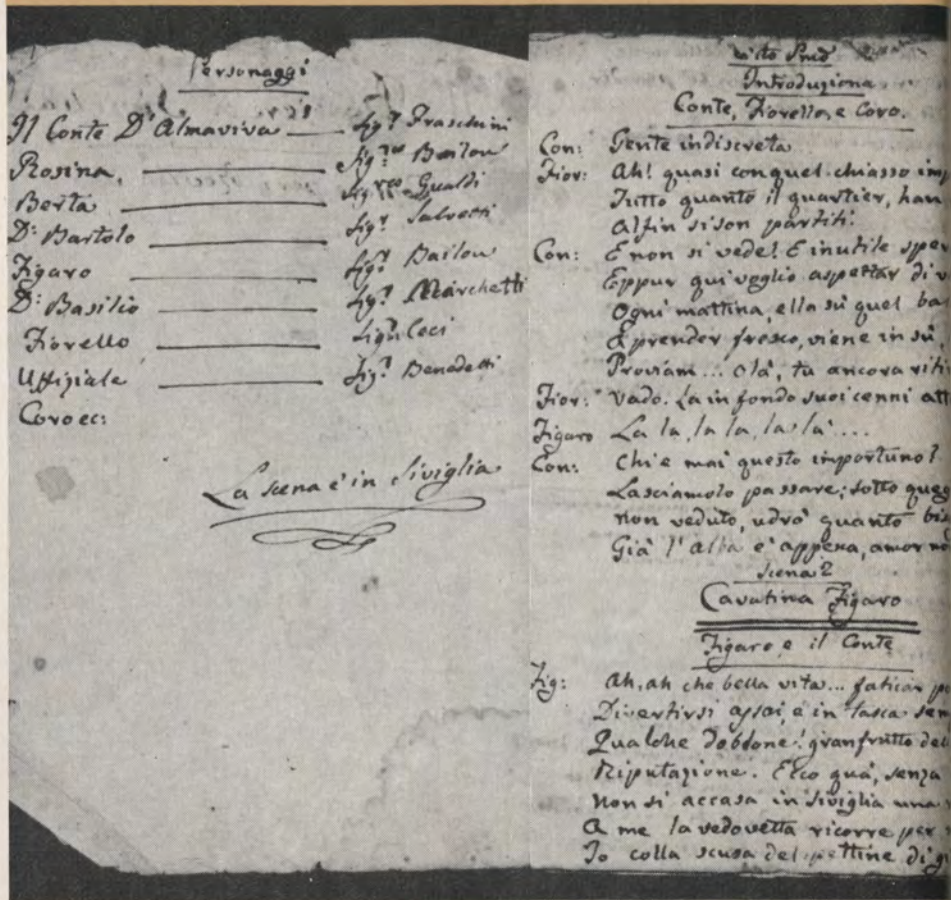 Personaggi
Il Conte D'Almaviva Sigr Fraschini
Rosina, Sigra Bailou
Berta Gualdi
Dn Bartolo Sigr Salvetti
Figaro Sigr Bailou
Dn Basilio Sigr Marchetti
Fiorello Sigr Ceci
Uffiziale Sigr Benedetti
Coro ec:
La scena è in Siviglia
Atto Pmo
Introduzione
Conte, Fiorello, e Coro.
Con: Gente indiscreta...
Fior: Ah! quasi con quel chiasso imp
Tutto quanto il quartier, han
Alfin si son partiti.
Con: E non si vede! E inutile sper
Eppur qui voglio aspettar di v
Ogni mattina, ella sù quel ba
A prender fresco, viene in sù,
Proviam... olà, tu ancora riti
Fior: Vado. La in fondo suoi cenni att
Figaro La la, la la, la là....
Con: Chi è mai questo importuno?
Lasciamolo passare; sotto ques
non veduto, udrò quanto bis
Già l'alba è appena, amor no
Scena 2
Cavatina Figaro
Figaro, e il Conte
Fig: Ah, ah che bella vita... faticar p
Divertirsi assai, e in tasca sem
Qualche dobdone! gran frutto del
Riputazione. Ecco quà, senza
Non si accasa in Siviglia una
A me la vedovetta ricorre per
Io colla scusa del pettine di g